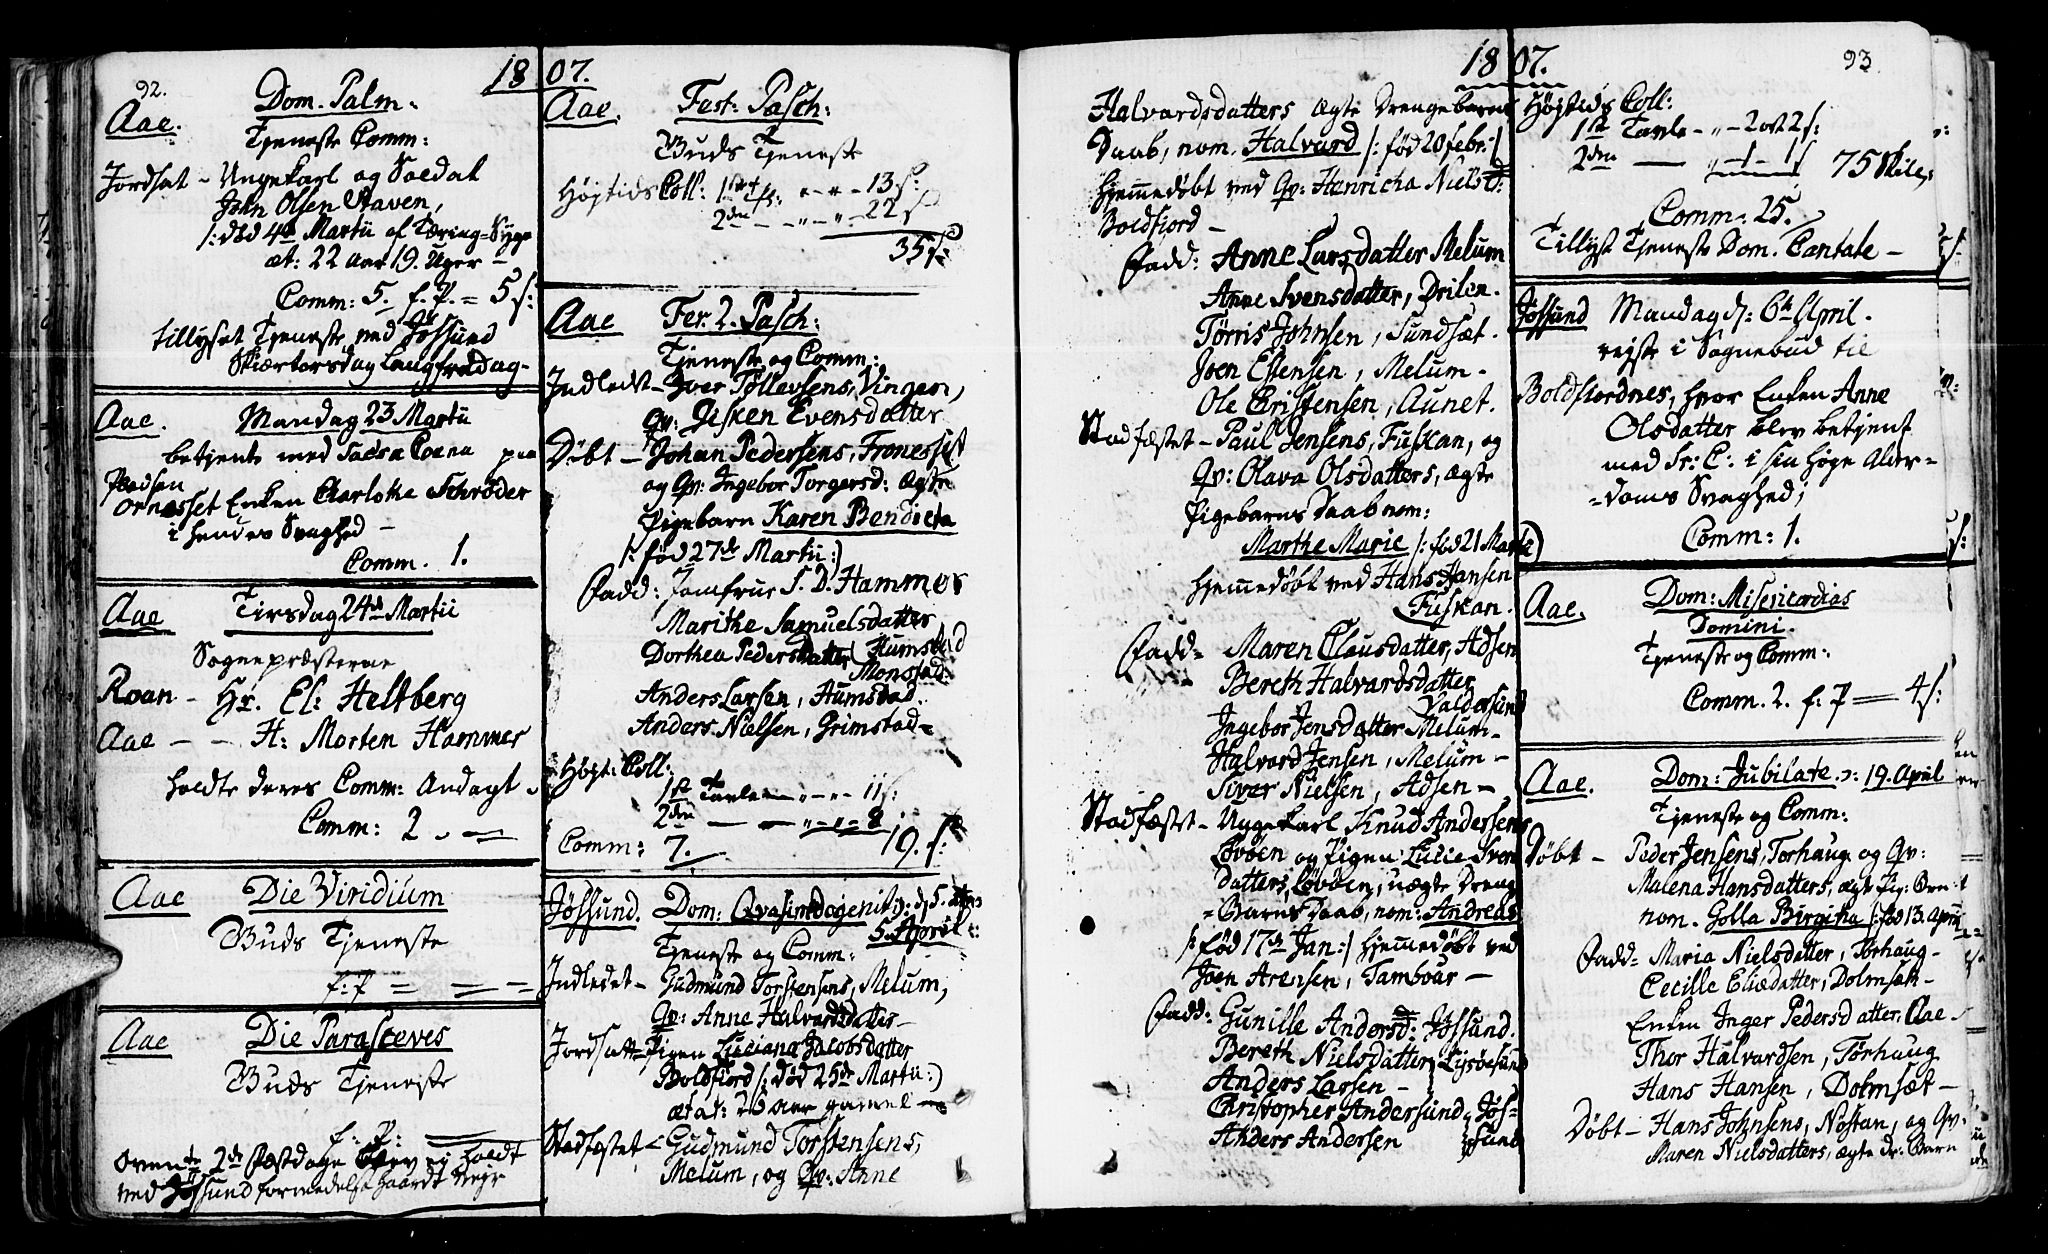 92.
1807.
Aae. Dom. Palm:
Tjeneste Comm:
Jordsat - Ungekarl og Soldat
John Olsen Staven,
/: død 4de Martii af Tæring-Syge
æt: 22 Aar 19. Uger -
Comm: 5. f. P. = 5 s:
tillyset Tjeneste ved Jøssund
Skiærtorsdag Langfredag -
Aae. Mandag 23 Martii
betjente med Sacra Coena paa
Pladsen
Ornesset Enken Charlotha Schrøder
i hendes Svaghed -
Comm. 1.
Aae Tirsdag 24de Martii
Sognepræsterne
Roan - Hr. El: Heltberg
Aae - - H: Morten Hammer
holdte deres Comm: Andagt
Comm: 2
Aae Die Viridium
Buds Tjeneste
f: P = = =
Aae Die Parasceves
Buds Tjeneste
f: P:
2de Festdage blev ej holdt
ved Jøssund formedelst haardt Vejr
Aae. Fest: Pasch:
Buds Tjeneste
Høytids Coll: 1ste - 13 s:
2den - 22 s
35 s:
Aae Fer. 2. Pasch:
Tjeneste og Comm:
Indledt - Iver Tollevsens, Vingen,
Qv: Gisken Evensdatter
Døbt - Johan Pedersens, Fronesset
og Qv: Ingebor Torgersd: ægte
Pigebarn Karen Bendicta
/: fød 27de Martii :)
Fadd: Jomfrue S. D. Hammer
Marithe Samuelsdatter
Dorthea Pedersdatter Humstad
Monstad.
Anders Larsen, Humstad.
Anders Nielsen, Grimstad -
Høyt: Coll:
1ste Tavlen - 11 s:
2den - 8
Comm: 7. 19. s:
Jøssund. Dom: Qvasimodogeniti
5. April:
Tjeneste og Comm:
Indledet - Gudmund Torstensens, Melum,
Qv: Anne Halvardsdatter -
Jordsatt - Pigen Luciana Jacobsdatter
Boldfiord /: død 25de Martii :)
ætat: 26 Aar gamel
Stadfæstet - Gudmund Torstensens,
Melum, og Qv: Anne
1807.
93
Halvardsdatters ægte Drengebarns
Daab, nom. Halvard /: fød 20 Febr: /
hjemmedøbt ved Qv: Henricha Nielsd:
Boldfiord -
Fadd: Anne Larsdatter Melum
Anne Svensdatter, Drilen.
Tørris Johnsen, Sundsæt.
Joen Estensen, Melum.
Ole Christensen, Aunet.
Stadfæstet - Paul Jensens, Fuskan, og
Qv: Olava Olsdatters, ægte
Pigebarns Daab nom:
Marthe Marie /: fød 21 Martii)
hjemmedøbt ved Hans Hansen
Fuskan.
Fadd = Maren Clausdatter, Adsen
Bereth Halvardsdatter
Valdersund
Ingebor Jensdatter Melum -
Halvard Jensen, Melum -
Siver Nielsen, Adsen -
Stadfæstet - Ungekarl Knud Andersens
Løvøen og Pigen Lucie Svens
datters, Løvøen, uægte Drenge
=Barns Daab, nom: Andreas
/: fød 17de Jan: / hjemmedøbt ved
Joen Arensen, Tambour -
Fadd: Gunille Andersd: Jøssund.
Bereth Nielsdatter Lysøesund
Anders Larsen -
Christopher Andersund, Jøs=
Anders Andersen sund
Højtids Coll:
1ste Tavle - 2 ort 2 s:
2den - 1 - 1 s 75 Skil:
Comm: 25.
Tillyst Tjeneste Dom. Cantate -
Jøssund Mandag d: 6te April.
rejste i Sognebud til
Boldfiordnes, hvor Enken Anne
Olsdatter blev betjent
med Sr: C: i sin høye Alder=
=doms Svaghed;
Comm: 1.
Aae. Dom: Misericordias
Domini.
Tjeneste og Comm:
Comm. 2. f: P = 4 s:
Aae. Dom: Jubilate ɔ: 19. April
Tjeneste og Comm:
Døbt - Peder Jensens, Torhaug og Qv:
Malena Hansdatters, ægte Pig: Barn
nom. Golla Birgitha /: fød 13. April
Fadd = Maria Nielsdatter, Torhaug -
Cecille Eliædatter, Dolmsæt -
Enken Inger Pedersdatter, Aae -
Thor Halvardsen, Torhaug
Hans Hansen, Dolmsæt -
Døbt - Hans Johnsens, Nostan, og Qv:
Maren Nielsdatters, ægte Dr: Barn